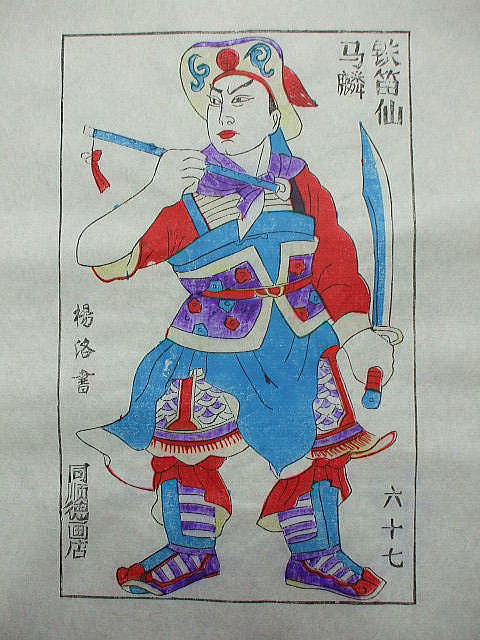 铁笛仙
马麟
楊洛書
同顺德画店
六十七